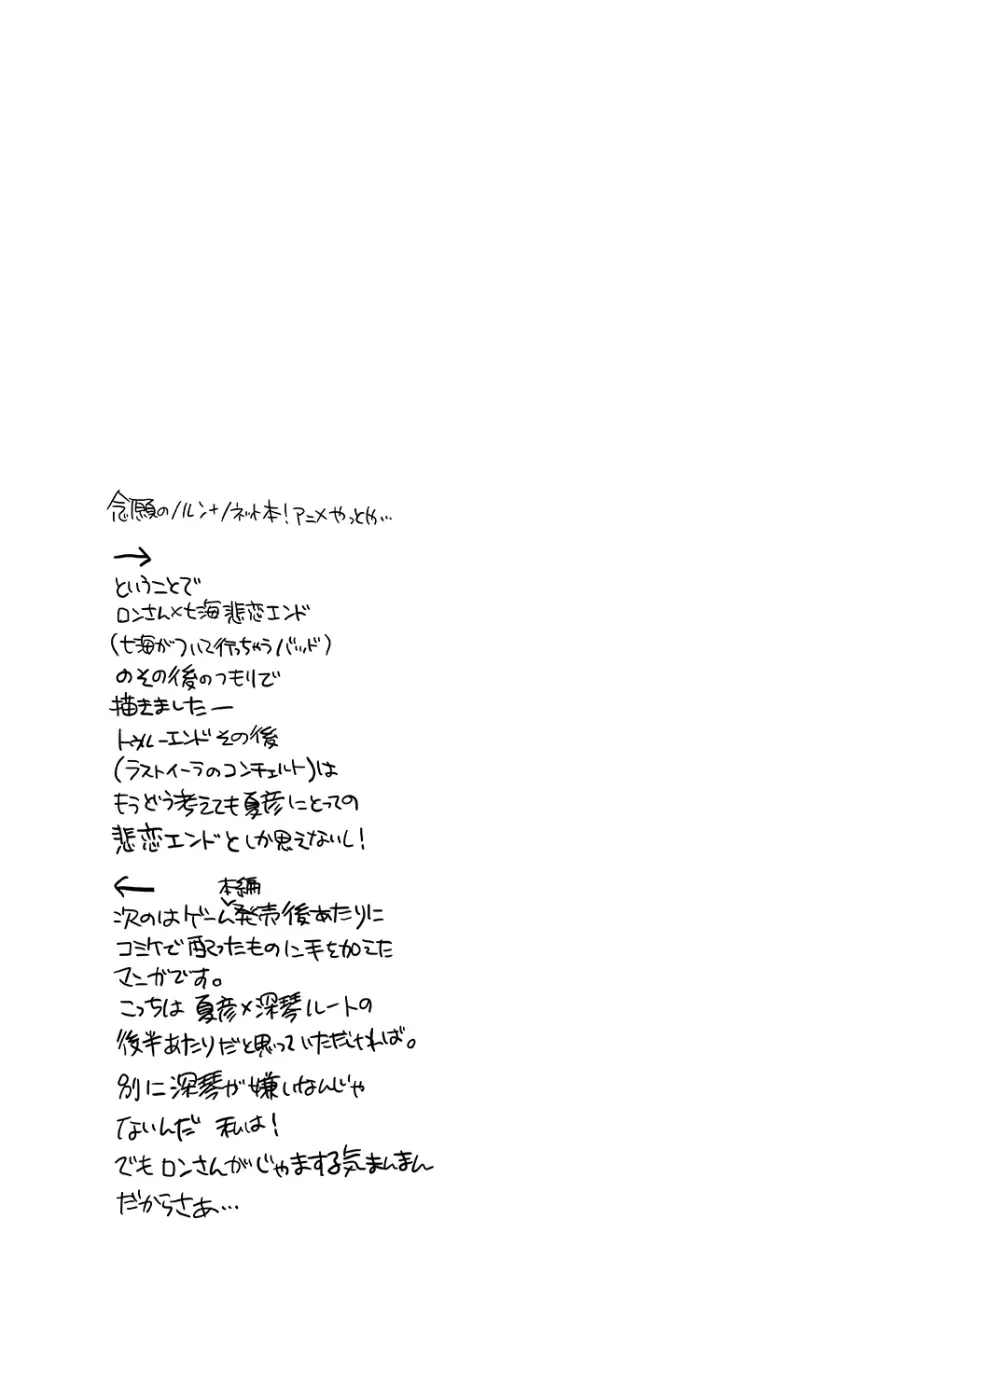 念願のノルン+ノネット本！アニメやっとか…
→
ということで
ロンさん×七海悲恋エンド
(七海がついて行っちゃうバッド)
のその後のつもりで
描きましたー
トゥルーエンドその後
(ラストイーラのコンチェルト)は
もうどう考えても夏彦にとっての
悲恋エンドとしか思えないし！
←
本編
次のはゲーム発売後あたりに
コミケで配ったものに手を加えた
マンガです。
こっちは 夏彦×深琴ルートの
後半あたりだと思っていただければ。
別に深琴が嫌いなんじゃ
ないんだ 私は！
でもロンさんがじゃまする気まんまん
だからさぁ…